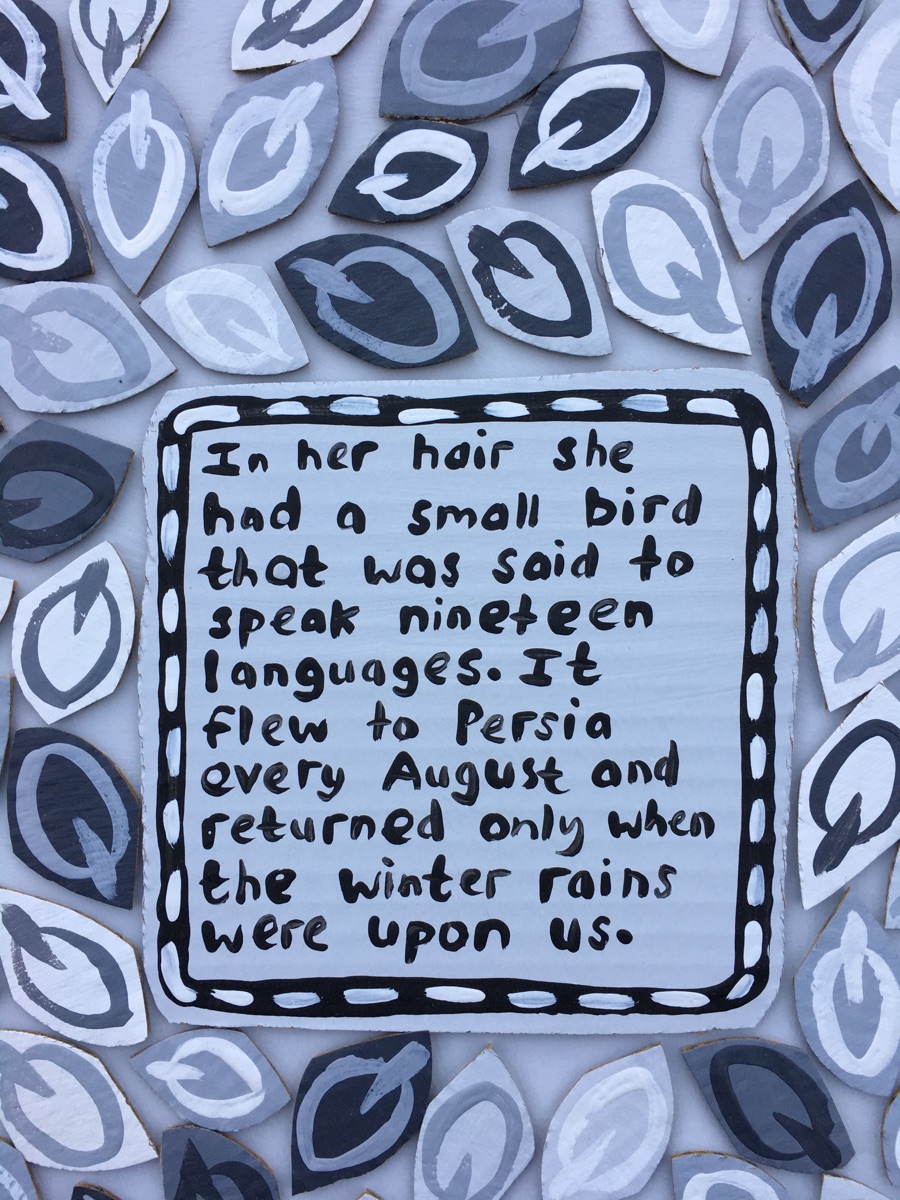 In her hair she
had a small bird
that was said to
speak nineteen
languages. It
flew to Persia
every August and
returned only when
the winter rains
were upon us.